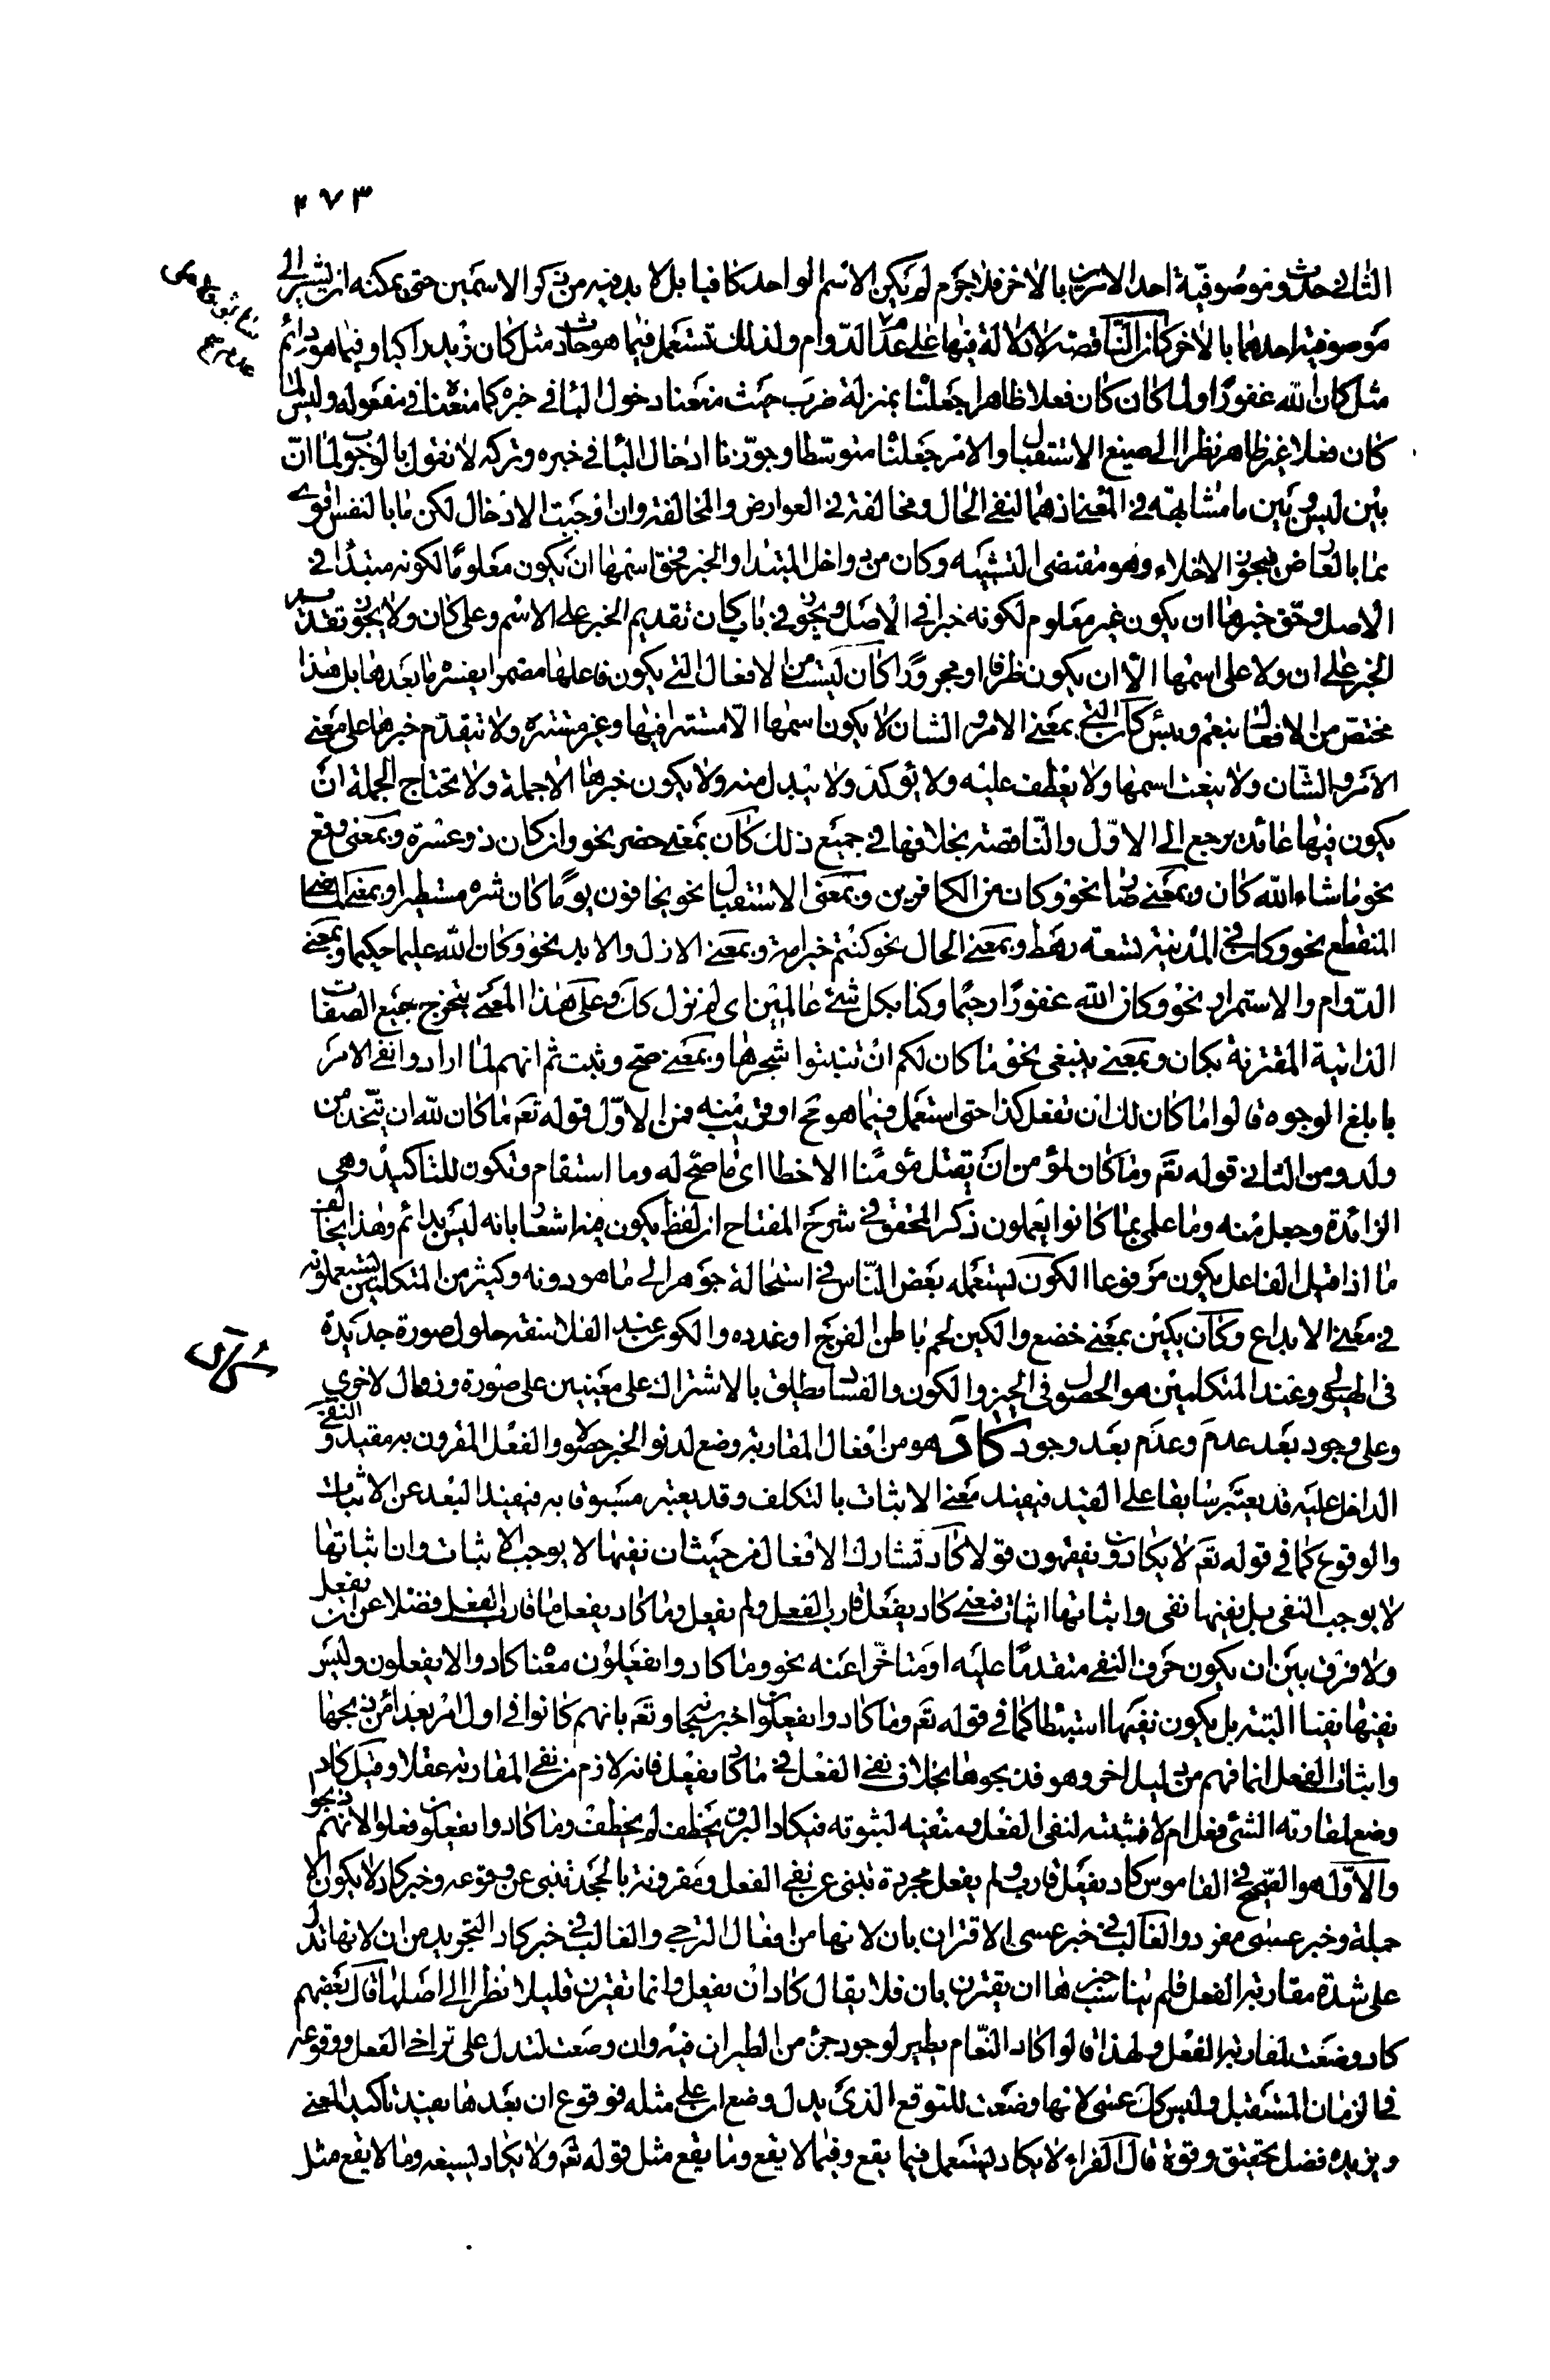 ٢٧٣
الثاني حدث وموصوفية احد الامرين بالاخر فلا جرم لم يكن الاسم الواحد كافيا بل لا بد فيه من ذكر الاسمين حتى يمكنه ان يشير الى
موصوفية احدهما بالاخر كان الناقصة لا دلالة فيها على عدم الدوام ولذلك تستعمل فيما هو حادث مثل كان زيد راكبا وفيما هو دائم
مثل كان الله غفورًا ولما كان كان فعلا ظاهرا جعلنا بمنزلة ضرب حيث منعنا دخول البا في خبره كما منعنا في مفعوله وليس لما
كان فعلا غير ظاهر نظرا الى صيغ الاستقبال والامر جعلنا متوسطا وجوّزنا ادخال البا في خبره وتركه لا نقول بالوجوب لما انّ
بين ليس وبين ما مشابهة في المعنى اذ هما لنفي الحال ومخالفة في العوارض والمخالفة وان اوجبت الادخال لكن ما بالنفس اقوى
مما بالعارض فيجوز الاخلاء وهو مقتضى التشبيه وكان من دواخل المبتدا والخبر فحق اسمها ان يكون معلومًا لكونه مبتدأ في
الاصل وحق خبرها ان يكون غير معلوم لكونه خبرا في الاصل ويجوز في باب كان تقديم الخبر على الاسم وعلى كان ولا يجوز تقديم
الخبر على ان ولا على اسمها الّا ان يكون ظرفا او مجرورًا كان ليست من الافعال التي يكون فاعلها مضمرا يفسره ما بعدها بل هذا
مختصّ من الافعال بنعم وبئس كان التي بمعنى الامر والشان لا يكون اسمها الّا مستترا فيها وغير مستتره ولا تتقدم خبرها على معنى
الامر والشّان ولا ينعت اسمها ولا يعطف عليه ولا يؤكد ولا يبدل منه ولا يكون خبرها الا جملة ولا تحتاج الجملة انّ
يكون فيها عائد يرجع الى الاوّل والنّاقصة بخلافها في جميع ذلك كان بمعنى حضر نحو وان كان ذو عسرة وبمعنى وقع
نحو ما شاء الله كان وبمعنى صار نحو وكان من الكافرين وبمعنى الاستقبال نحو يخافون يومًا كان شره مستطيرا وبمعنى المضى
المنقطع نحو وكان في المدينة تسعة رهط وبمعنى الحال نحو كنتم خير امة وبمعنى الازل والابد نحو وكان الله عليما حكيما وبمعنى
الدّوام والاستمرار نحو وكان الله غفورًا رحيمًا وكنا بكل شئ عالمين اى لم نزل كك وعلى هذا المعنى يتخرج جميع الصفات
الذاتية المقترنة بكان وبمعنى ينبغى نحو ما كان لكم ان تنبتوا شجرها وبمعنى صح وثبت ثم انهم لما ارادوا نفى الامر
بابلغ الوجوه قالوا ما كان لك ان تفعل كذا حتى استعمل فيما هو مح او قريب منه فمن الاوّل قوله تعم ما كان لله ان يتّخذ من
ولد ومن الثانى قوله تعم وما كان لمؤمن ان يقتل مؤمنا الا خطا اى ما صح له وما استقام وتكون للتاكيد وهى
الزائدة وجعل منه وما علمى بما كانوا يعملون ذكر المحقق في شرح المفتاح ان لفظ يكون فيه اشعار بانه ليس بدائم وهذا يخالف
ما اذا قيل الفاعل يكون مرفوعا الكون يستعمله بعض النّاس في استحالة جوهر الى ما هو دونه وكثير من المتكلمين يستعملونه
في معنى الابداع وكان يكين بمعنى خضع والكين لحم باطن الفرج او غدده والكون عند الفلاسفة حلول صورة جديدة
فى الهيولى وعند المتكلمين هو الحصول في الحيز والكون والفساد يطلق بالاشتراك على معنيين على صورة وزوال لاخرى
وعلى وجود بعد عدم وعدم بعد وجود كاد هو من افعال المقاربة وضع لدنو الخبر حصولا والفعل المقرون به مقيد والنفى
الداخل عليه قد يعتبر سابقا على القيد فيفيد معنى الاثبات بالتكلف وقد يعتبر مسبوقا به فيفيد البعد عن الاثبات
والوقوع كما في قوله تعم لا يكادون يفقهون قولا كاد تشارك الافعال من حيث ان نفيها لا يوجب الاثبات وان اثباتها
لا يوجب النفى بل نفيها نفى واثباتها اثبات فمعنى كاد يفعل قارب الفعل ولم يفعل وما كاد يفعل ما قارب الفعل فضلا عن ان يفعل
ولا فرق بين ان يكون حرف النفى متقدمًا عليه او متاخّرا عنه نحو وما كادوا يفعلون معناه كادوا لا يفعلون وليس
نفيها نفيا البتة بل يكون نفيها استبطاء كما في قوله تعم وما كادوا يفعلون اخبر سبحانه وتعم بانهم كانوا في اول امر بعداء من ذبحها
واثبات الفعل انما فهم من دليل اخر وهو فذبحوها بخلاف نفى الفعل في ما كاد يفعل فانه لازم من نفى المقاربة عقلا وقيل كاد
وضع لمقاربة الشئ فعل ام لا فمثبته لنفى الفعل ومنفيه لثبوته فيكاد البرق يخطف لم يخطف وما كادوا يفعلون فعلوا لانهم ذبحوا
والاوّل هو الصحيح في القاموس كاد يفعل قارب ولم يفعل مجردة تنبى عن نفى الفعل ومقرونة بالجحد تنبى عن وقوعه وخبر كاد لا يكون الا
جملة وخبر عسى مفرد والغالب في خبر عسى الاقتران بان لانها من افعال الترجى والغالب في خبر كاد التجريد من ان لانها تدل
على شدة مقاربة الفعل فلم يناسب خبرها ان يقترن بان فلا يقال كاد ان يفعل وانما تقترن قليلا نظرا الى اصلها قال بعضهم
كاد وضعت لمقاربة الفعل ولهذا قالوا كاد النعّام يطير لوجود جزء من الطيران فيه وان وضعت لتدل على تراخى الفعل ووقوعه
في الزمان المستقبل وليس كك عسى لانها وضعت للتوقع الذى يدل وضع ان على مثله فوقوع ان بعدها يفيد تاكيد المعنى
ويزيده فضل تحقيق وقوة قال الفراء لا يكاد يستعمل فيما يقع وفيما لا يقع وما يقع مثل قوله تعم ولا يكاد يسيغه وما لا يقع مثل